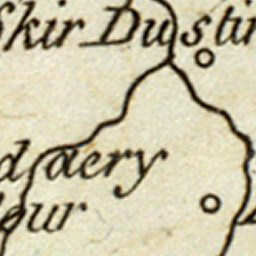 Skir Dustin
daery
our